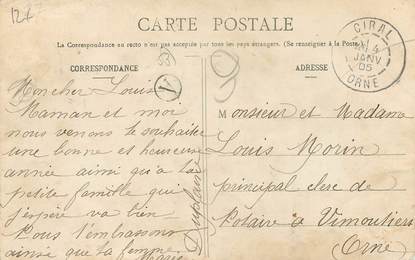 12f
CARTE POSTALE
La Correspondance au recto n'est pas acceptée par tous les pays étrangers. (Se renseigner à la Poste.)
CORRESPONDANCE
ADRESSE
CIRAL
4
JANV
05
ORNE
Mon cher Louis
Maman et moi
nous venons te souhaiter
une bonne et heureuse
année ainsi qu'a ta
petite famille qui
j'espère va bien
Nous t'embrassons
ainsi que ta femme
Monsieur et Madame
Louis Morin
principal clerc de
Notaire a Vimoutiers
Orne